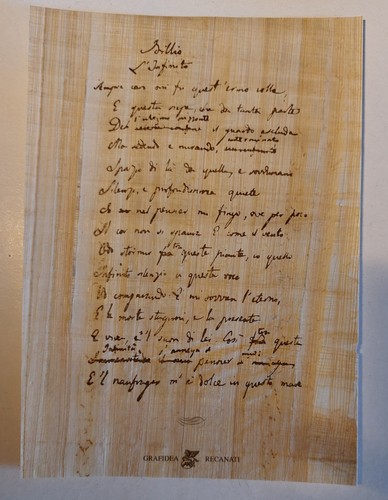 Idillio
L'Infinito
Sempre caro mi fu quest'ermo colle,
E questa siepe, che da tanta parte
De l'ultimo orizzonte il guardo esclude
Ma sedendo e mirando, interminato
Spazio di là da quella, e sovrumani
Silenzi, e profondissima quiete
Io nel pensier mi fingo, ove per poco
Il cor non si spaura. E come il vento
Odo stormir tra queste piante, io quello
Infinito silenzio a questa voce
Vo comparando. E mi sovvien l'eterno,
E le morte stagioni, e la presente
E viva, e'l suon di lei. Così tra questa
Infinità s'annega il pensier mio
E'l naufragar m'è dolce in questo mare
GRAFIDEA RECANATI